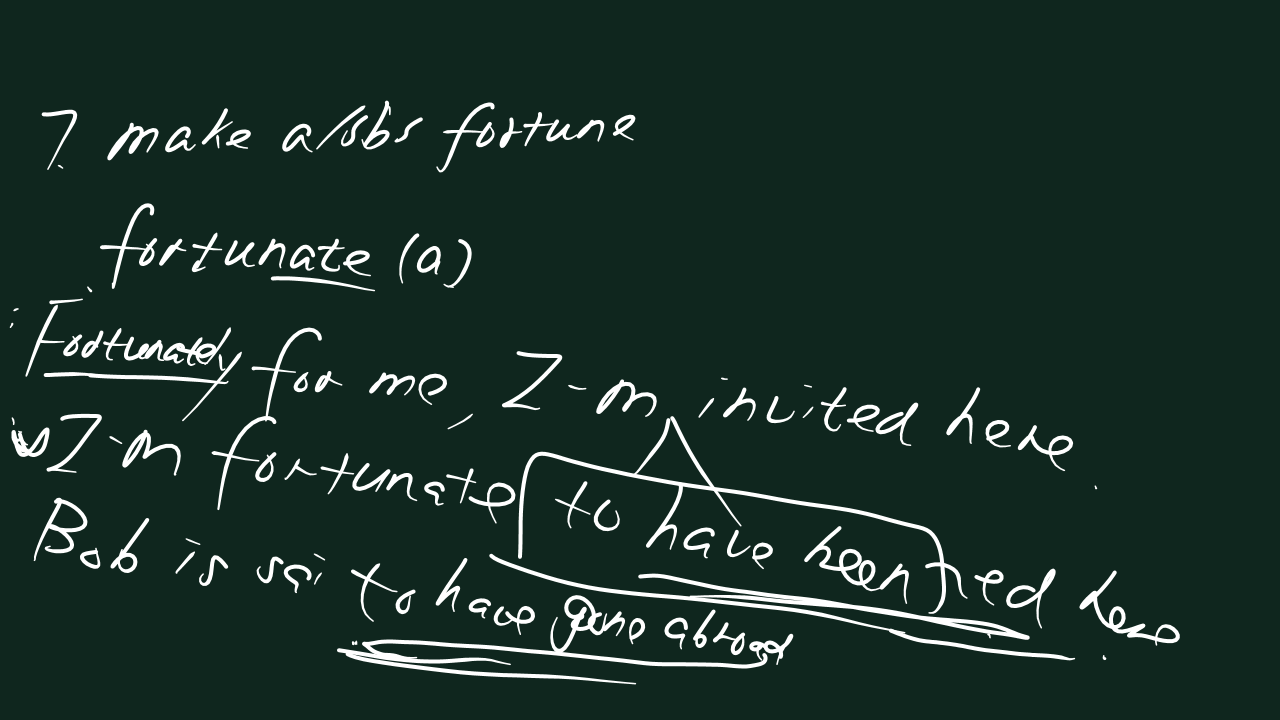 7. make a/sbs fortune
fortunate (a)
Fortunately for me, I-m invited here.
I-m fortunate to have been here.
Bob is sai to have gone abroad